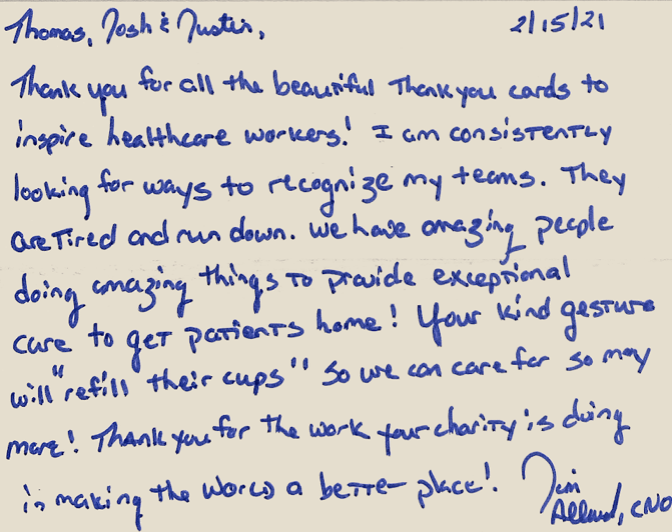 Thomas, Josh & Justin, 2/15/21
Thank you for all the beautiful Thank you cards to
inspire healthcare workers! I am consistently
looking for ways to recognize my teams. They
are tired and run down. We have amazing people
doing amazing things to provide exceptional
care to get patients home! Your kind gesture
will "refill their cups" so we can care for so may
more! Thank you for the work your charity is doing
in making the world a better place!
CNO